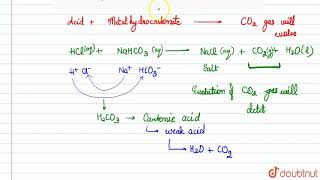 Acid + Metal hydrocarbonate → CO2 gas will evolve
HCl(aq) + NaHCO3(aq) → NaCl(aq) + CO2(g)↑ + H2O(l)
H+ Cl- Na+ HCO3- Salt
Evolution of CO2 gas will
H2CO3 → Carbonic acid
↳ weak acid
↳ H2O + CO2
doubtnut